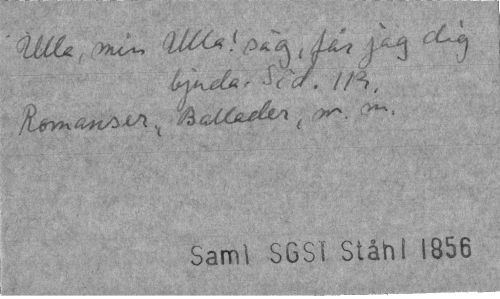 Ulla, min Ulla! säg, får jag dig
bjuda. Sid. 112.
Romanser, Ballader, m. m.
Saml SGSI Ståhl 1856